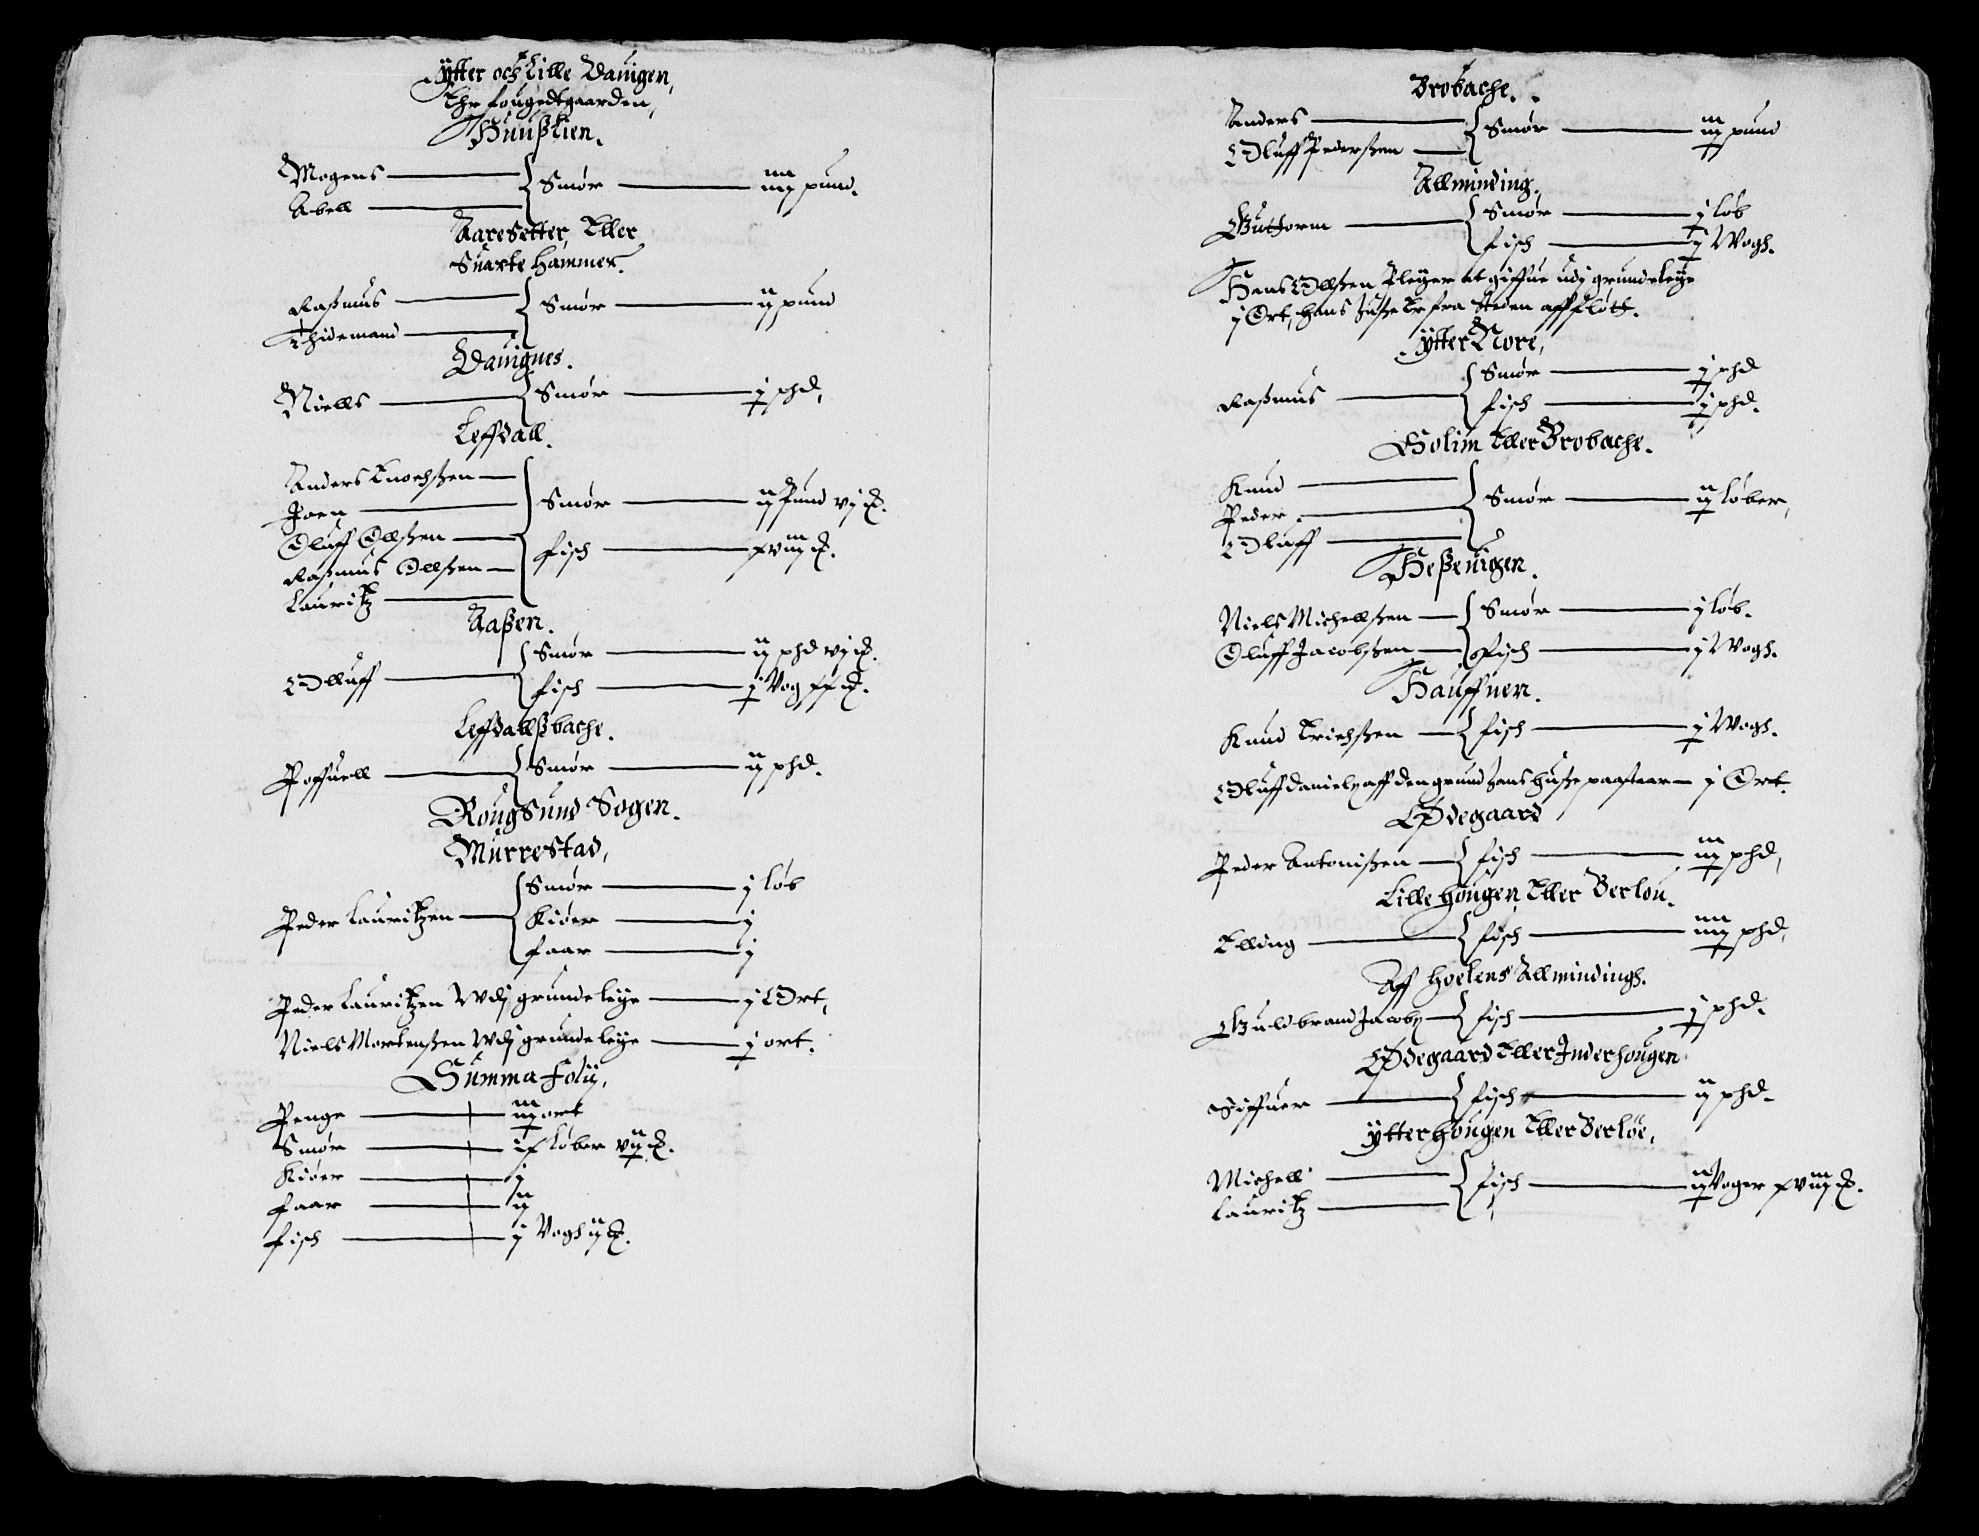 Ytter och Lille Dauigen,
Ehr fougedtgaarden,
Huußlien.
Mogens
Abell
Smør iiij pund.
Aaresetter, Eller
Suarte hammer.
Raßmus
Thidemand
Smør ij pund
Dauignes.
Niells Smør j phd,
Leffdall.
Anders Knochßen
Joen
Oluff Ollßen
Raßmus Ollßen
Lauritz
Smør ij Pund vj
fisch xviij
Aaßen.
Olluff
Smør ij phd vj
fisch j Vog xx
Leffdallßbache.
Poffuell Smør ij phd.
Rougsund Sogen.
Murrestad,
Peder Lauritzen
Smør j løb
Kiøer j
faar j
Peder Lauritzen Wdj grundeleye j Ort,
Niels Mortenßen Wdj grundeleye j ort.
Summa Folij,
Penge iij ort
Smør ix Løber vij
Kiøer j
faar ij
fisch j Vogh ij
Brobache.
Anders
Oluff Pederßen
Smør iij pund
Allminding.
Guttorm
Smør j løb
fisch j Wogh.
Hans Ollßen Pleyer at giffue udj grundeleye
j Ort, hans huße Er fra Steden affløtt.
Ytter Nore,
Raßmus
Smør j phd
fisch j phd.
Holim Eller Brobache.
Knud
Peder
Oluff
Smør ij løber,
Heßeuigen.
Niels Michellßen
Oluff Jacobßen
Smør j løb.
fisch j Wogh.
Hauffnen.
Knud Erichßen fisch j Wogh.
Oluff daniely aff den grund hans huße paastaar j Ort.
Ødegaard
Peder Antonißen fisch iij phd,
Lille hougen Eller Berlou.
Elling fisch iiij phd,
Aff hoelens Allmindingh.
Guldbrand Jacobß fisch j phd.
Ødegaard Eller Inderhougen
Siffuer fisch ij phd.
Ytterhougen Eller Berløe,
Michell
Lauritz
fisch ij Voger xviij